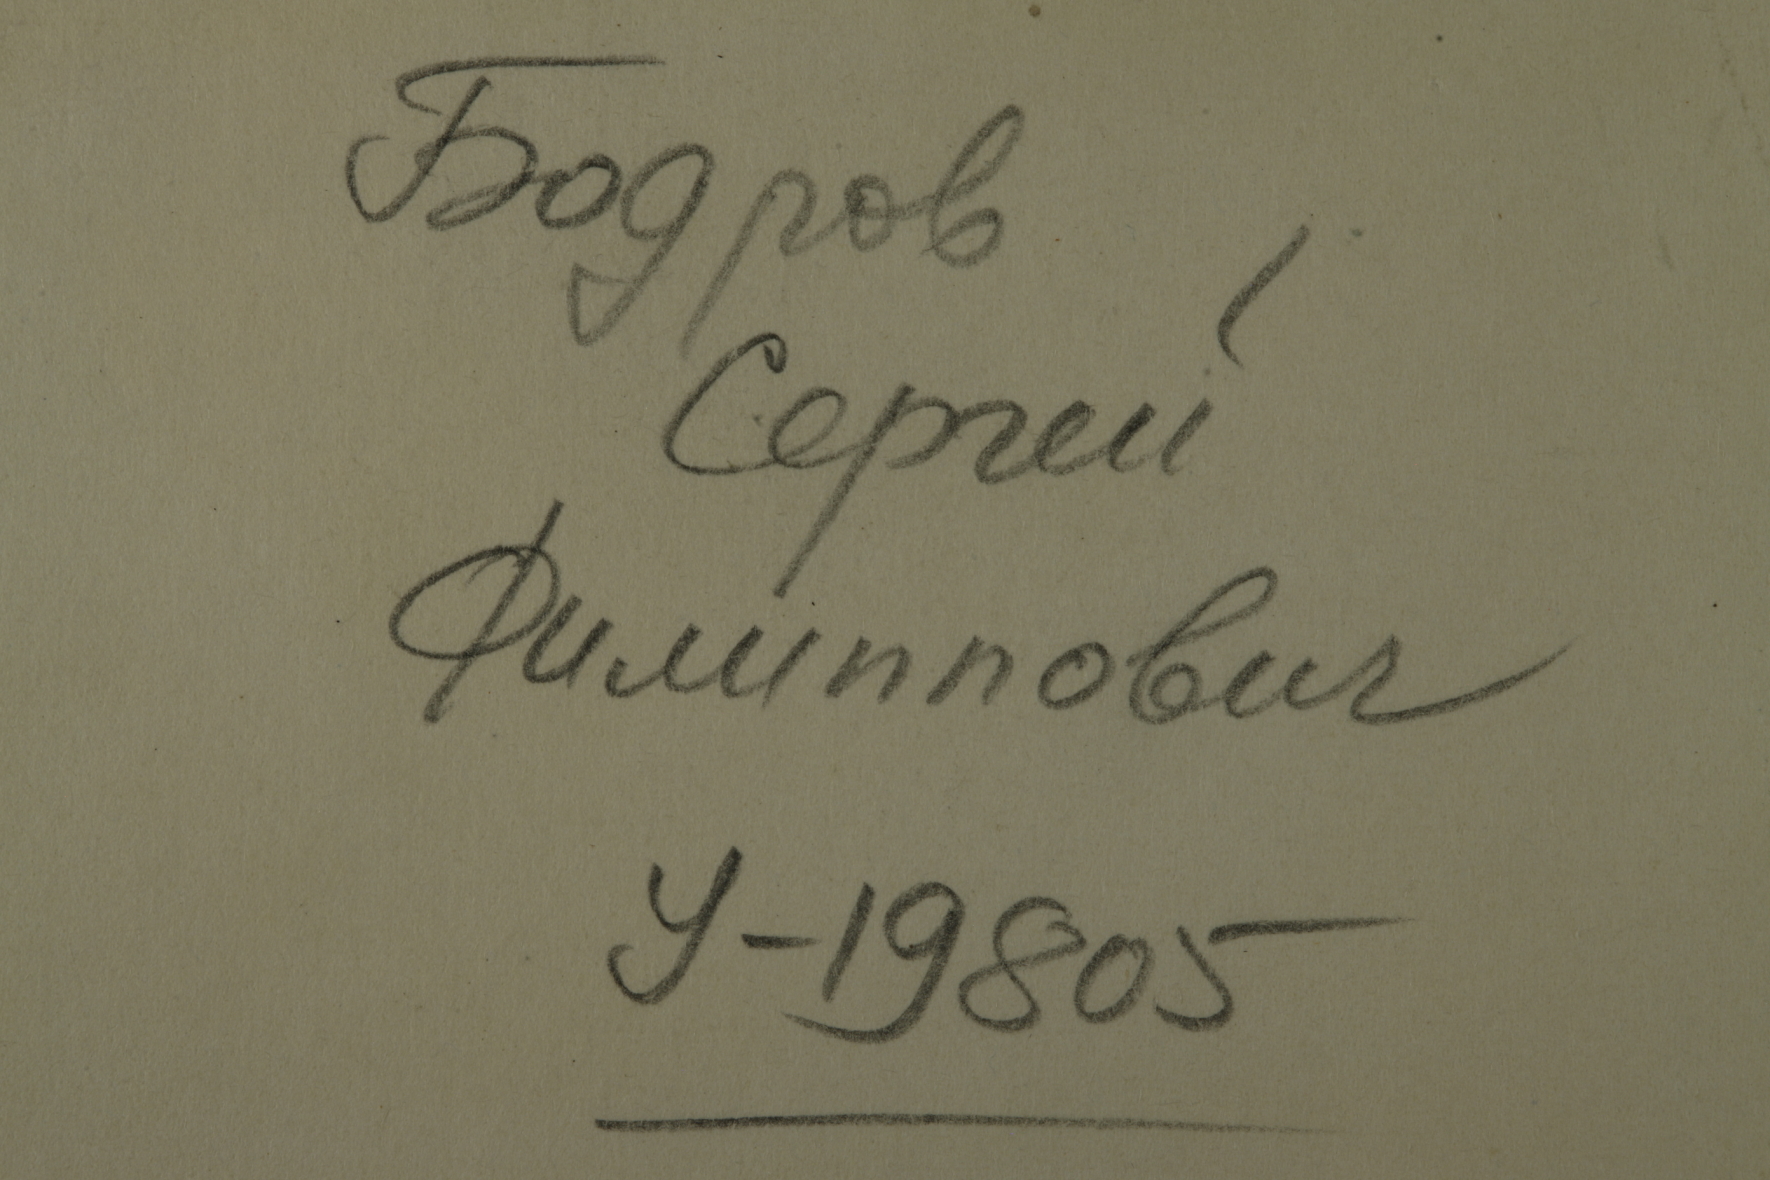 Бодров
Сергей
Филиппович
У-19805